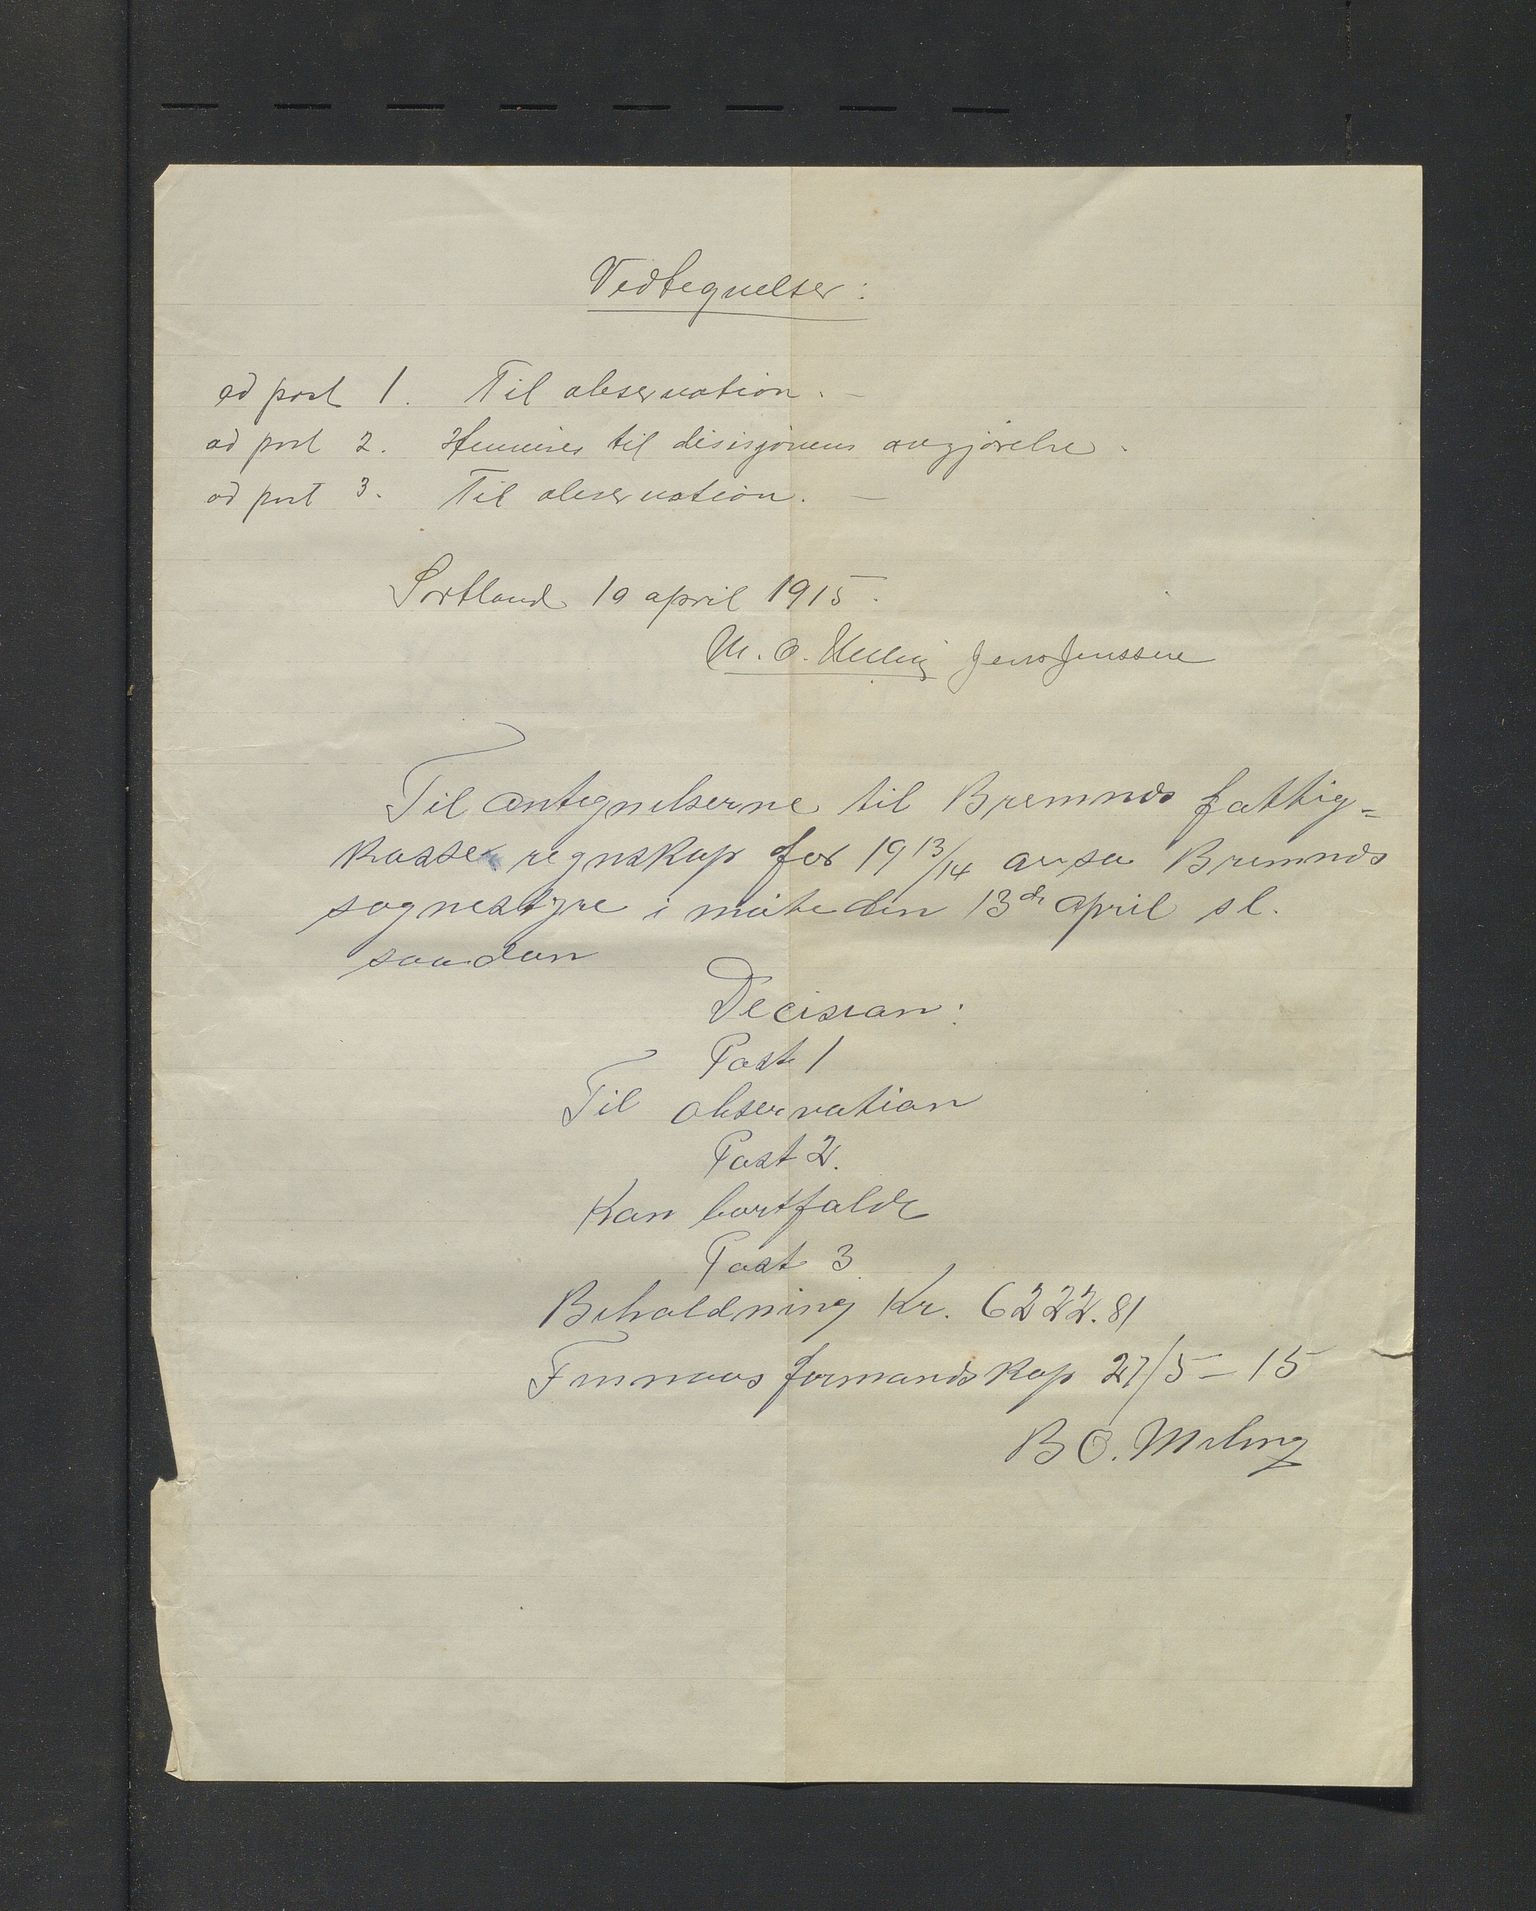 Vedtegnelser:
ad post 1. Til observation. –
ad post 2. Henvises til disisjonens avgjørelse.
ad post 3. Til observation. –
Sortland 10 april 1915.
M. O. Jens Jenssen
Til antegnelserne til Bremnes fattig=
kasse regnskap for 19 13/14 avsa Bremnes
sognestyre i møte den 13de april sl.
saadan
Decision:
Post 1
Til observation
Post 2.
Kan bortfalde
Post 3
Beholdning Kr. 6222.81
Finnaas formandskap 27/5 – 15
B O. Meling